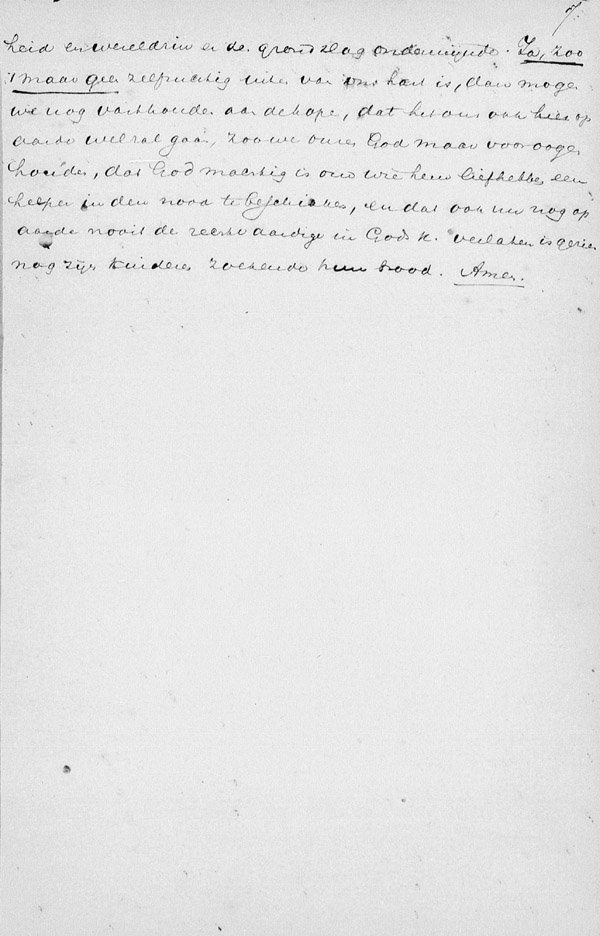 7.
heid en wereldzin er de grondslag ondermijnde. Ja, zoo
't maar geen zelfzuchtig uiten van ons hart is, dan mogen
we nog vasthouden aan de hope, dat het ons ook hier op
aarde wel zal gaan, zoo we onzen God maar voor oogen
houden, dat God machtig is ons wie hem liefhebben een
helper in den nood te beschikken, en dat ook nu nog op
aarde nooit de rechtvaardige in Gods k. verlaten is gezien
nog zijn kinderen zoekende hun brood. Amen.